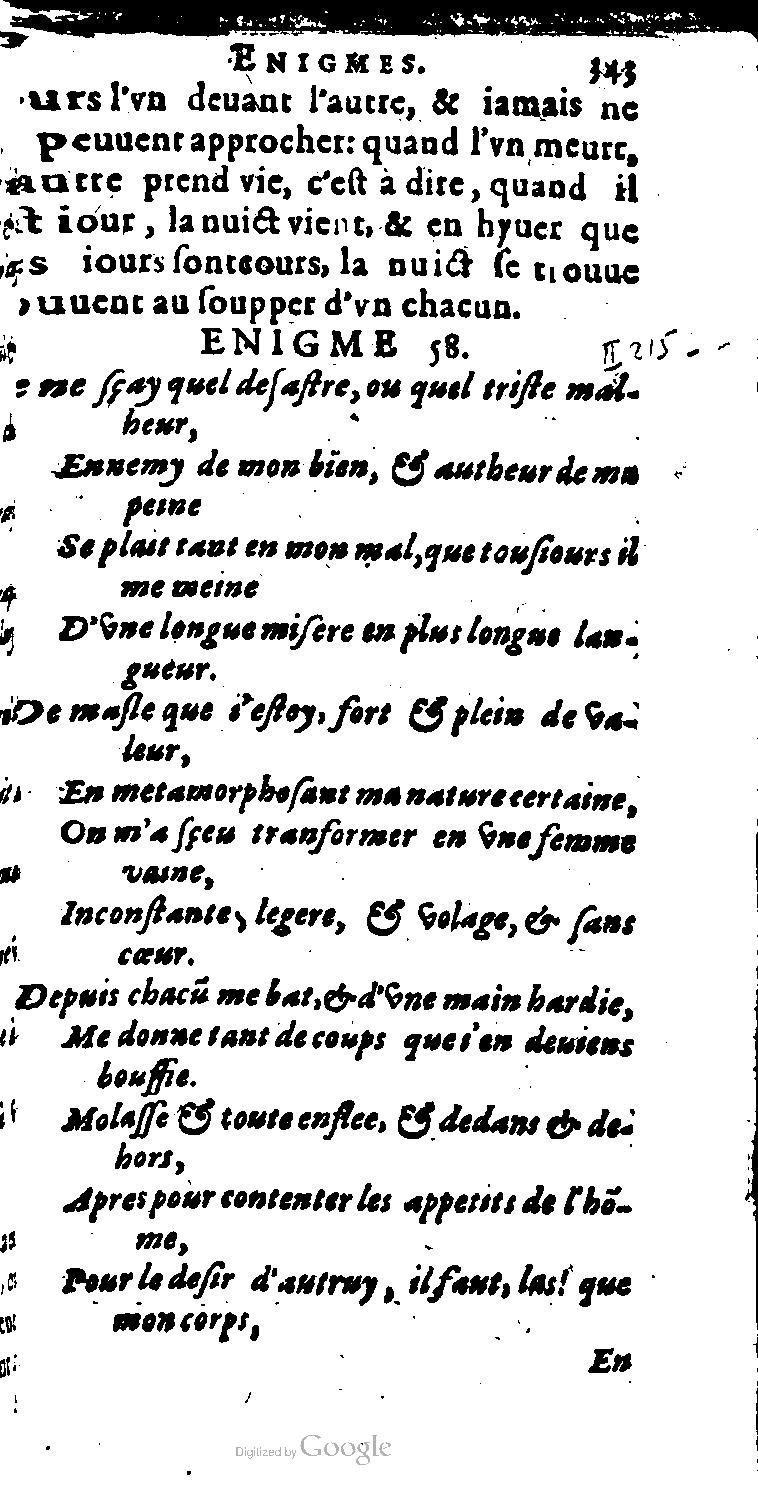 ENIGMES. 343
urs l'vn deuant l'autre, & iamais ne
peuuent approcher: quand l'vn meurt,
autre prend vie, c'eſt à dire, quand il
ſt iour, la nuict vient, & en hyuer que
s iours ſont cours, la nuict ſe trouue
ouuent au ſoupper d'vn chacun.
ENIGME 58. II 215
e me ſçay quel deſaſtre, ou quel triſte mal-
heur,
Ennemy de mon bien, & autheur de ma
peine
Se plait tant en mon mal, que touſiours il
me meine
D'vne longue miſere en plus longue lan-
gueur.
De maſle que i'eſtoy, fort & plein de va-
leur,
En metamorphoſant ma nature certaine,
On m'a ſçeu tranſformer en vne femme
vaine,
Inconſtante, legere, & volage, & ſans
cœur.
Depuis chacũ me bat, & d'vne main hardie,
Me donne tant de coups que i'en deuiens
bouffie.
Molaſſe & toute enflee, & dedans & de-
hors,
Apres pour contenter les appetits de l'hõ-
me,
Pour le deſir d'autruy, il faut, las! que
mon corps,
En
Digitized by Google